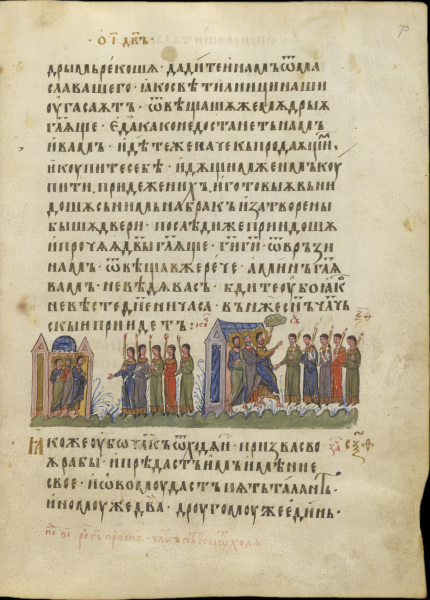 о҃і дв҃ъ
дрымъ рекошѧ · дадите намъ ѿ ма
сла вашего · ꙗко свѣтилници наши
оугасаѫтъ · ѿвѣщашѧ же мѫдрыѧ
гл҃ѧще · еда како не достанетъ намъ
и вамъ · идѣте же паче къ продаѫщи҃
и коупите себѣ · идѫщимъ же имъ коу
пити, прииде женихъ, и готовыѧ вьни
дошѧ съ нимь на бракъ и затворены
бышѧ двери · послѣди же приидошѧ
и прочѧѧ дв҃ы гл҃ѧще · г҃и г҃и ѿвръзи
намъ · ѿвѣщавъ же рече · аминь гл҃ѧ
вамъ · не вѣдѣ васъ · бдите оубо ꙗко
не вѣсте дн҃е ни часа · въ нже сн҃ъ чл҃чь
скыи приидетъ :
ꙗкоже оубо чл҃къ ѿходѧи · призва сво
ѧ рабы · и прѣдастъ имъ имѣние
свое · и овомоу дастъ пѧть таланть ·
иномоу же два · дроугомоу же единь ·